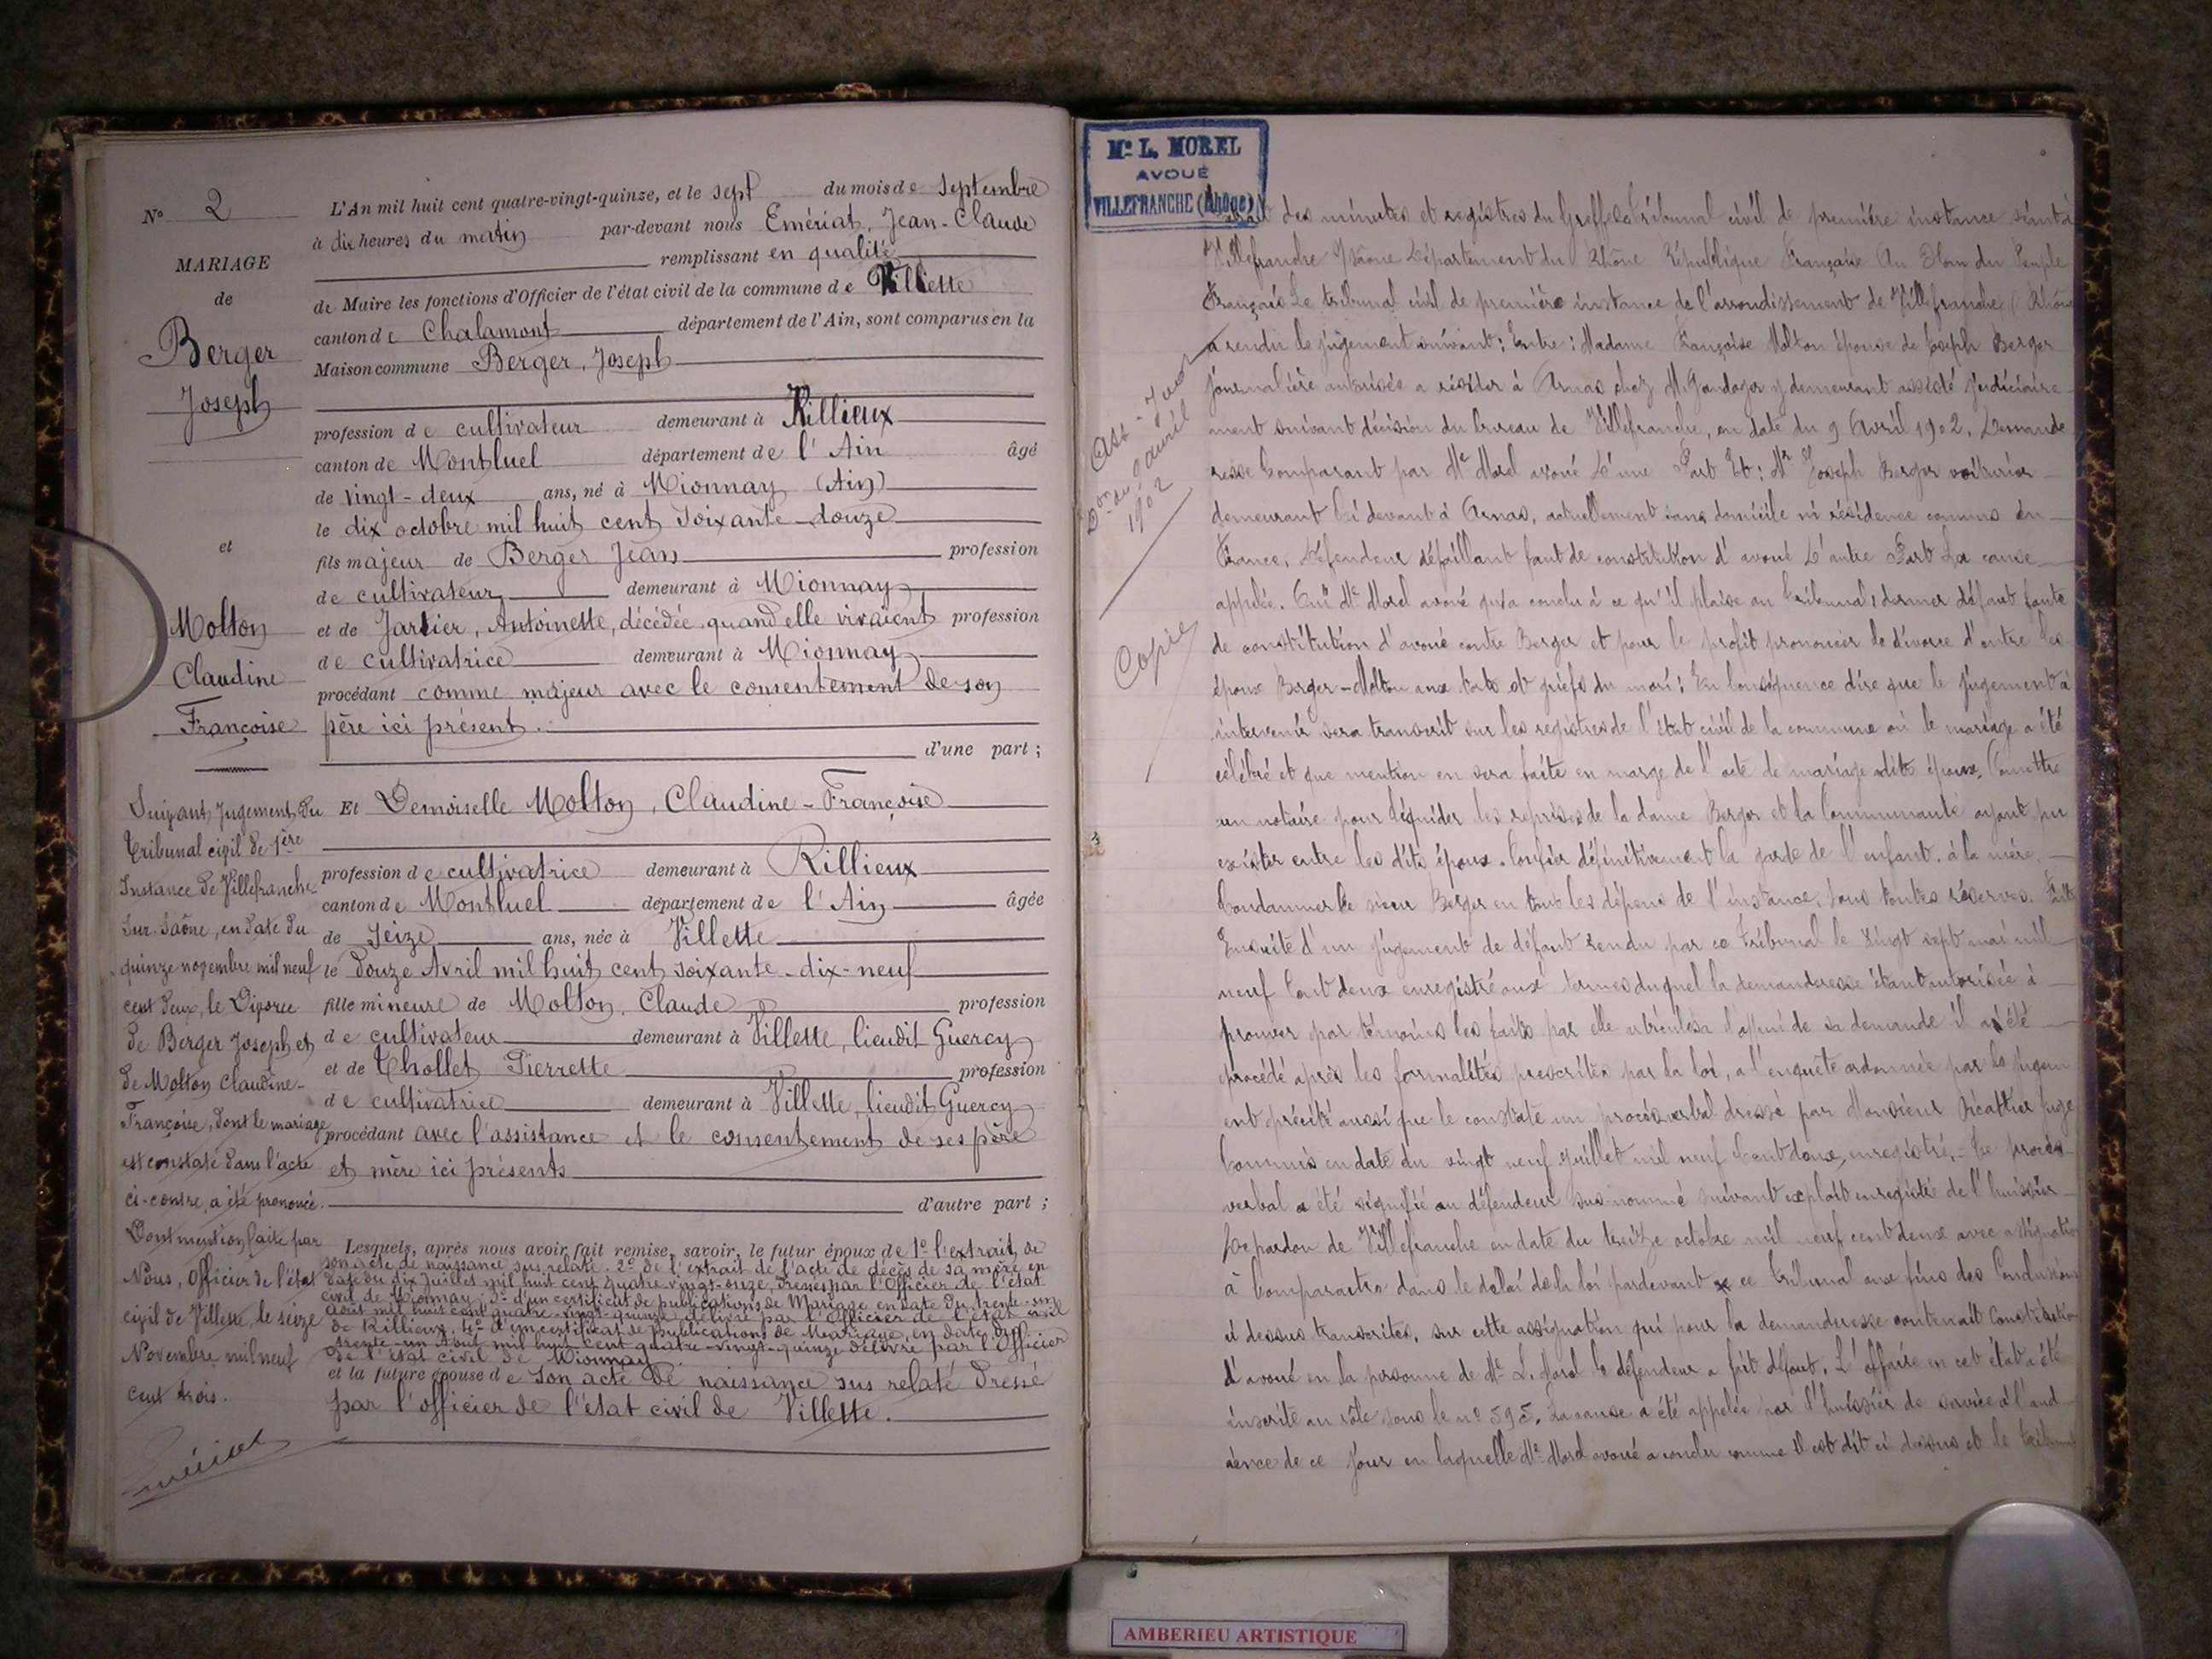 N° 2
MARIAGE
de
Berger
Joseph
et
Molton
Claudine
Françoise
Suivant Jugement du
Tribunal civil de 1ère
Instance de Villefranche
sur-Saône, en date du
quinze novembre mil neuf
cent deux, le Divorce
de Berger Joseph et
de Molton Claudine-
Françoise, dont le mariage
est constaté dans l'acte
ci-contre, a été prononcé.
Dont mention faite par
Nous, Officier de l'état
civil de Villette, le seize
Novembre mil neuf
cent trois.
L'An mil huit cent quatre-vingt-quinze, et le sept du mois de Septembre
à dix heures du matin par-devant nous Emériat, Jean-Claude
remplissant en qualité
de Maire les fonctions d'Officier de l'état civil de la commune de Villette
canton de Chalamont département de l'Ain, sont comparus en la
Maison commune Berger, Joseph
profession de cultivateur demeurant à Rillieux
canton de Montluel département de l'Ain âgé
de vingt-deux ans, né à Mionnay (Ain)
le dix octobre mil huit cent soixante-douze
fils majeur de Berger Jean profession
de cultivateur demeurant à Mionnay
et de Jarlier, Antoinette, décédée quand elle vivaient profession
de cultivatrice demeurant à Mionnay
procédant comme majeur avec le consentement de son
père ici présent.
d'une part ;
Et Demoiselle Molton, Claudine-Françoise
profession de cultivatrice demeurant à Rillieux
canton de Montluel département de l'Ain âgée
de Seize ans, née à Villette
le douze Avril mil huit cent soixante-dix-neuf
fille mineure de Molton, Claude profession
de cultivateur demeurant à Villette, lieudit Guercy
et de Chollet Pierrette profession
de cultivatrice demeurant à Villette, lieudit Guercy
procédant avec l'assistance et le consentement de ses père
et mère ici présents
d'autre part ;
Lesquels, après nous avoir fait remise, savoir, le futur époux de 1° l'extrait de
son acte de naissance sus relaté. 2° de l'extrait de l'acte de décès de sa mère en
date du dix Juillet mil huit cent quatre-vingt-onze, dressé par l'Officier de l'état
civil de Mionnay. 3° d'un certificat de publications de Mariage en date du trente-un
Août mil huit cent quatre-vingt-quinze délivré par l'Officier de l'état civil
de Rillieux. 4° d'un certificat de publications de Mariage, en date du
trente-un Août mil huit cent quatre-vingt-quinze délivré par l'Officier
de l'état civil de Mionnay
et la future épouse de son acte de naissance sus relaté dressé
par l'officier de l'état civil de Villette.
Me L. MOREL
AVOUÉ
VILLEFRANCHE (Rhône)
Ass. Jud
Don du 9 avril
1902
Copie
des minutes et registres du Greffe du Tribunal civil de première instance séant à
Villefranche s/Saône Département du Rhône République Française Au Nom du Peuple
Français Le tribunal civil de première instance de l'arrondissement de Villefranche (Rhône
a rendu le jugement suivant : Entre : Madame Françoise Molton épouse de Joseph Berger
journalière autorisée a résider à Arnas chez M. y demeurant assisté judiciaire-
ment suivant décision du bureau de Villefranche, en date du 9 Avril 1902. Demande
resse Comparant par Me Morel avoué D'une Part Et : Mr Joseph Berger voiturier
demeurant Ci devant à Arnas, actuellement sans domicile ni résidence connus en
France, Défendeur défaillant faut de constitution d'avoué D'autre Part La cause
appelée. Ouï Me Morel avoué qui a conclu à ce qu'il plaise au tribunal, donner défaut faute
de constitution d'avoué contre Berger et pour le profit prononcer le divorce d'entre les
époux Berger-Molton aux torts et griefs du mari ; En Conséquence dire que le jugement à
intervenir sera transcrit sur les registres de l'état civil de la commune où le mariage a été
célébré et que mention en sera faite en marge de l'acte de mariage dits époux. Comettre
un notaire pour liquider les reprises de la dame Berger et la Communauté ayant pu
exister entre les dits époux. Confier définitivement la garde de l'enfant à la mère.
Condamner le sieur Berger en tous les dépens de l'instance. Sous toutes réserves. Faits
Ensuite d'un jugement de défaut rendu par ce Tribunal le vingt sept mai mil
neuf Cent deux enregistré aux termes duquel la demanderesse étant autorisée à
prouver par témoins les faits par elle articulés a l'appui de sa demande il a été
procédé après les formalités prescrites par la loi, a l'enquête ordonnée par le jugem
ent précité aussi que le constate un procès verbal dressé par Monsieur Juge
Commis en date du vingt neuf Juillet mil neuf Cent deux, enregistré,- Ce procès-
verbal a été signifié au défendeur sus nommé suivant exploit enregistré de l'huissier
Depardon de Villefranche en date du treize octobre mil neuf cent deux avec assignation
à Comparaitre dans le délai de la loi pardevant ce tribunal aux fins des Conclusions
ci dessus transcrites, sur cette assignation qui pour la demanderesse contenait Constitution
d'avoué en la personne de Me L. Morel le défendeur a fait défaut. L'affaire en cet état a été
inscrite au rôle sous le n° 595. La cause a été appelée par l'huissier de service à l'aud-
ience de ce jour en laquelle Me Morel avoué a conclu comme il est dit ci dessus et le tribunal
AMBERIEU ARTISTIQUE